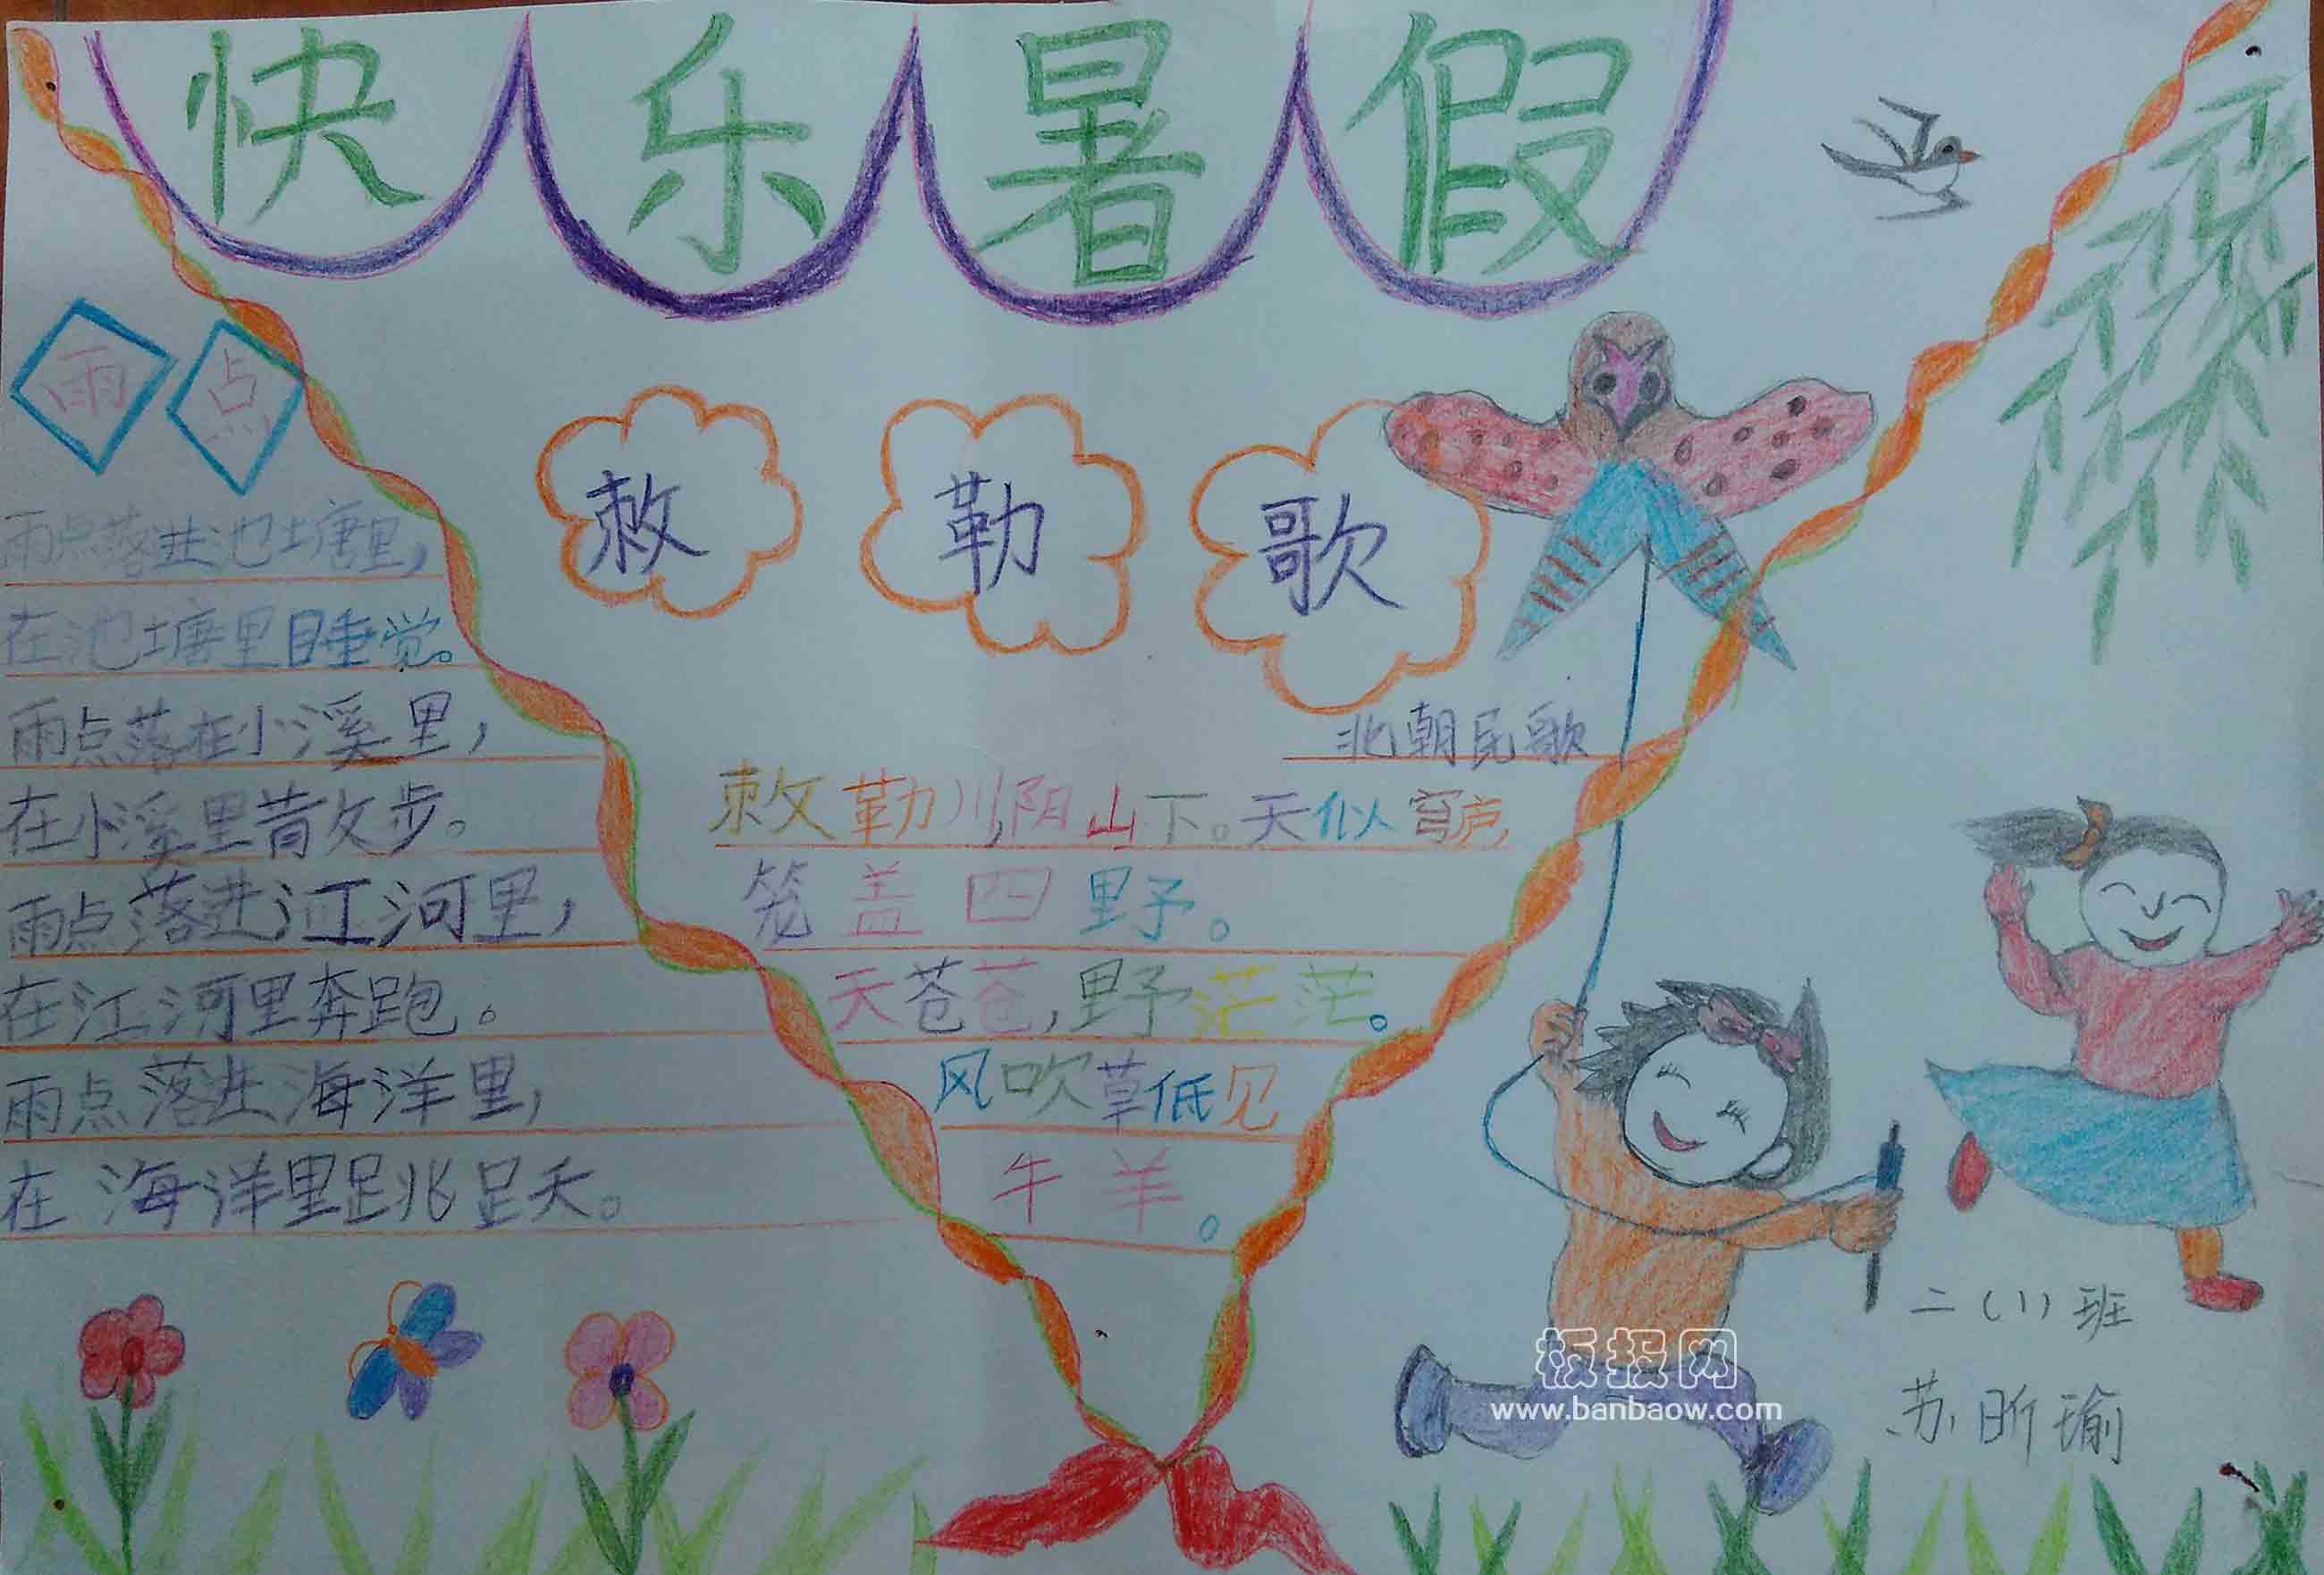 快乐暑假
雨点
雨点落进池塘里,
在池塘里睡觉。
雨点落在小溪里,
在小溪里散步。
雨点落进江河里,
在江河里奔跑。
雨点落进海洋里,
在海洋里跳跃。
敕勒歌
北朝民歌
敕勒川,阴山下。天似穹庐,
笼盖四野。
天苍苍,野茫茫。
风吹草低见
牛羊。
二(1)班
苏昕瑜
板报网
www.banbaow.com